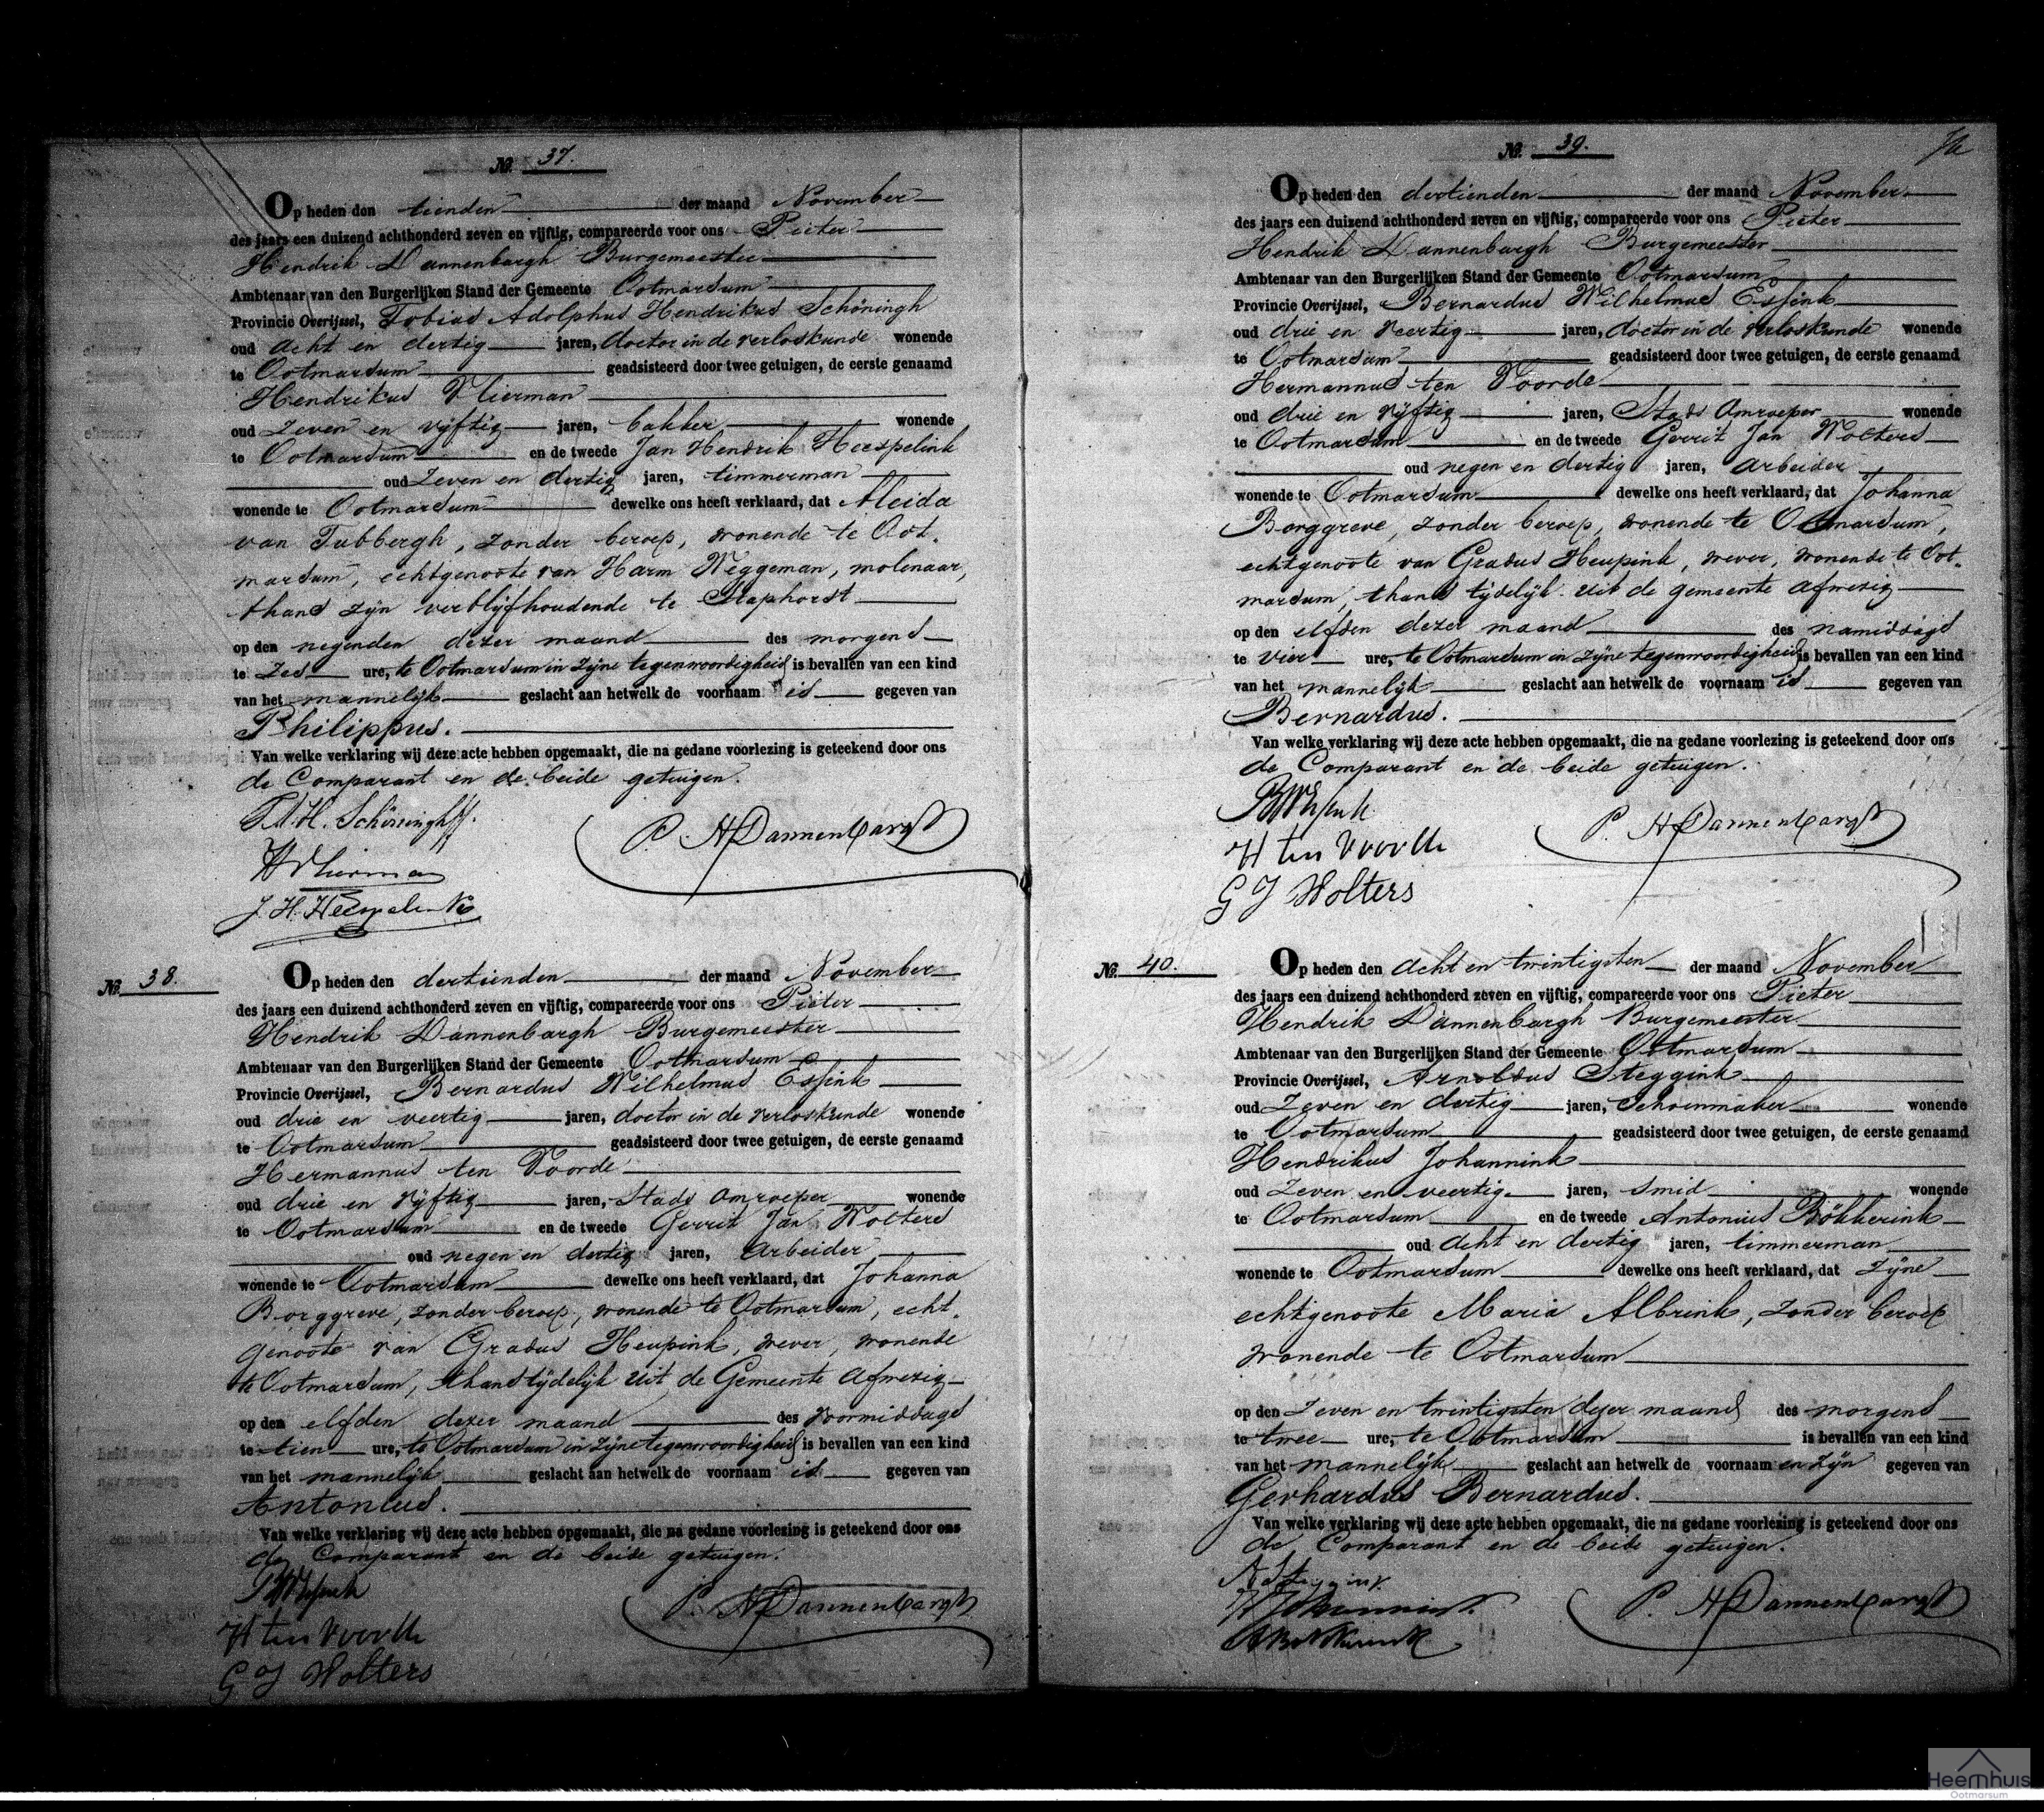 No. 37.
Op heden den tienden der maand November
des jaars een duizend achthonderd zeven en vijftig, compareerde voor ons Pieter
Hendrik Dannenbargh Burgemeester
Ambtenaar van den Burgerlijken Stand der Gemeente Ootmarsum
Provincie Overijssel, Tobias Adolphus Hendrikus Schöningh
oud acht en dertig jaren, doctor in de verloskunde wonende
te Ootmarsum geadsisteerd door twee getuigen, de eerste genaamd
Hendrikus Vlierman
oud zeven en vijftig jaren, bakker wonende
te Ootmarsum en de tweede Jan Hendrik Heespelink
oud zeven en dertig jaren, timmerman
wonende te Ootmarsum dewelke ons heeft verklaard, dat Aleida
van Tubbergh, zonder beroep, wonende te Oot-
marsum, echtgenoote van Harm Weggeman, molenaar,
thans zijn verblijfhoudende te Staphorst
op den negenden dezer maand des morgens
te zes ure, te Ootmarsum in zijne tegenwoordigheid is bevallen van een kind
van het mannelijk geslacht aan hetwelk de voornaam is gegeven van
Philippus.
Van welke verklaring wij deze acte hebben opgemaakt, die na gedane voorlezing is geteekend door ons
de Comparant en de beide getuigen.
T.A.H. Schöningh
P. H Dannenbargh
H Vlierman
J. H. Heespelink
No. 38.
Op heden den dertienden der maand November
des jaars een duizend achthonderd zeven en vijftig, compareerde voor ons Pieter
Hendrik Dannenbargh Burgemeester
Ambtenaar van den Burgerlijken Stand der Gemeente Ootmarsum
Provincie Overijssel, Bernardus Wilhelmus Essink
oud drie en veertig jaren, doctor in de verloskunde wonende
te Ootmarsum geadsisteerd door twee getuigen, de eerste genaamd
Hermannus ten Voorde
oud drie en vijftig jaren, Stads omroeper wonende
te Ootmarsum en de tweede Gerrit Jan Wolters
oud negen en dertig jaren, arbeider
wonende te Ootmarsum dewelke ons heeft verklaard, dat Johanna
Borggreve, zonder beroep, wonende te Ootmarsum, echt-
genoote van Gradus Heupink, wever, wonende
te Ootmarsum, thans tijdelijk uit de Gemeente afwezig
op den elfden dezer maand des voormiddags
te tien ure, te Ootmarsum in zijne tegenwoordigheid is bevallen van een kind
van het mannelijk geslacht aan hetwelk de voornaam is gegeven van
Antonius.
Van welke verklaring wij deze acte hebben opgemaakt, die na gedane voorlezing is geteekend door ons
de Comparant en de beide getuigen.
BWEssink
P. H Dannenbargh
H ten Voorde
G J Wolters
No. 39.
Op heden den dertienden der maand November
des jaars een duizend achthonderd zeven en vijftig, compareerde voor ons Pieter
Hendrik Dannenbargh Burgemeester
Ambtenaar van den Burgerlijken Stand der Gemeente Ootmarsum
Provincie Overijssel, Bernardus Wilhelmus Essink
oud drie en veertig jaren, doctor in de verloskunde wonende
te Ootmarsum geadsisteerd door twee getuigen, de eerste genaamd
Hermannus ten Voorde
oud drie en vijftig jaren, Stads Omroeper wonende
te Ootmarsum en de tweede Gerrit Jan Wolters
oud negen en dertig jaren, arbeider
wonende te Ootmarsum dewelke ons heeft verklaard, dat Johanna
Borggreve, zonder beroep, wonende te Ootmarsum,
echtgenoote van Gradus Heupink, wever, wonende te Oot-
marsum, thans tijdelijk uit de gemeente afwezig
op den elfden dezer maand des namiddags
te vier ure, te Ootmarsum in zijne tegenwoordigheid is bevallen van een kind
van het mannelijk geslacht aan hetwelk de voornaam is gegeven van
Bernardus.
Van welke verklaring wij deze acte hebben opgemaakt, die na gedane voorlezing is geteekend door ons
de Comparant en de beide getuigen.
BWEssink
P. H Dannenbargh
H ten Voorde
G J Wolters
No. 40.
Op heden den acht en twintigsten der maand November
des jaars een duizend achthonderd zeven en vijftig, compareerde voor ons Pieter
Hendrik Dannenbargh Burgemeester
Ambtenaar van den Burgerlijken Stand der Gemeente Ootmarsum
Provincie Overijssel, Arnoldus Steggink
oud zeven en dertig jaren, Schoenmaker wonende
te Ootmarsum geadsisteerd door twee getuigen, de eerste genaamd
Hendrikus Johannink
oud zeven en veertig jaren, smid wonende
te Ootmarsum en de tweede Antonius Bökkerink
oud acht en dertig jaren, timmerman
wonende te Ootmarsum dewelke ons heeft verklaard, dat zijne
echtgenoote Maria Albrink, zonder beroep
wonende te Ootmarsum
op den zeven en twintigsten dezer maand des morgens
te twee ure, te Ootmarsum is bevallen van een kind
van het mannelijk geslacht aan hetwelk de voornaam en zijn gegeven van
Gerhardus Bernardus.
Van welke verklaring wij deze acte hebben opgemaakt, die na gedane voorlezing is geteekend door ons
de Comparant en de beide getuigen.
A Steggink
P. H Dannenbargh
H Johannink
Heemhuis
Ootmarsum